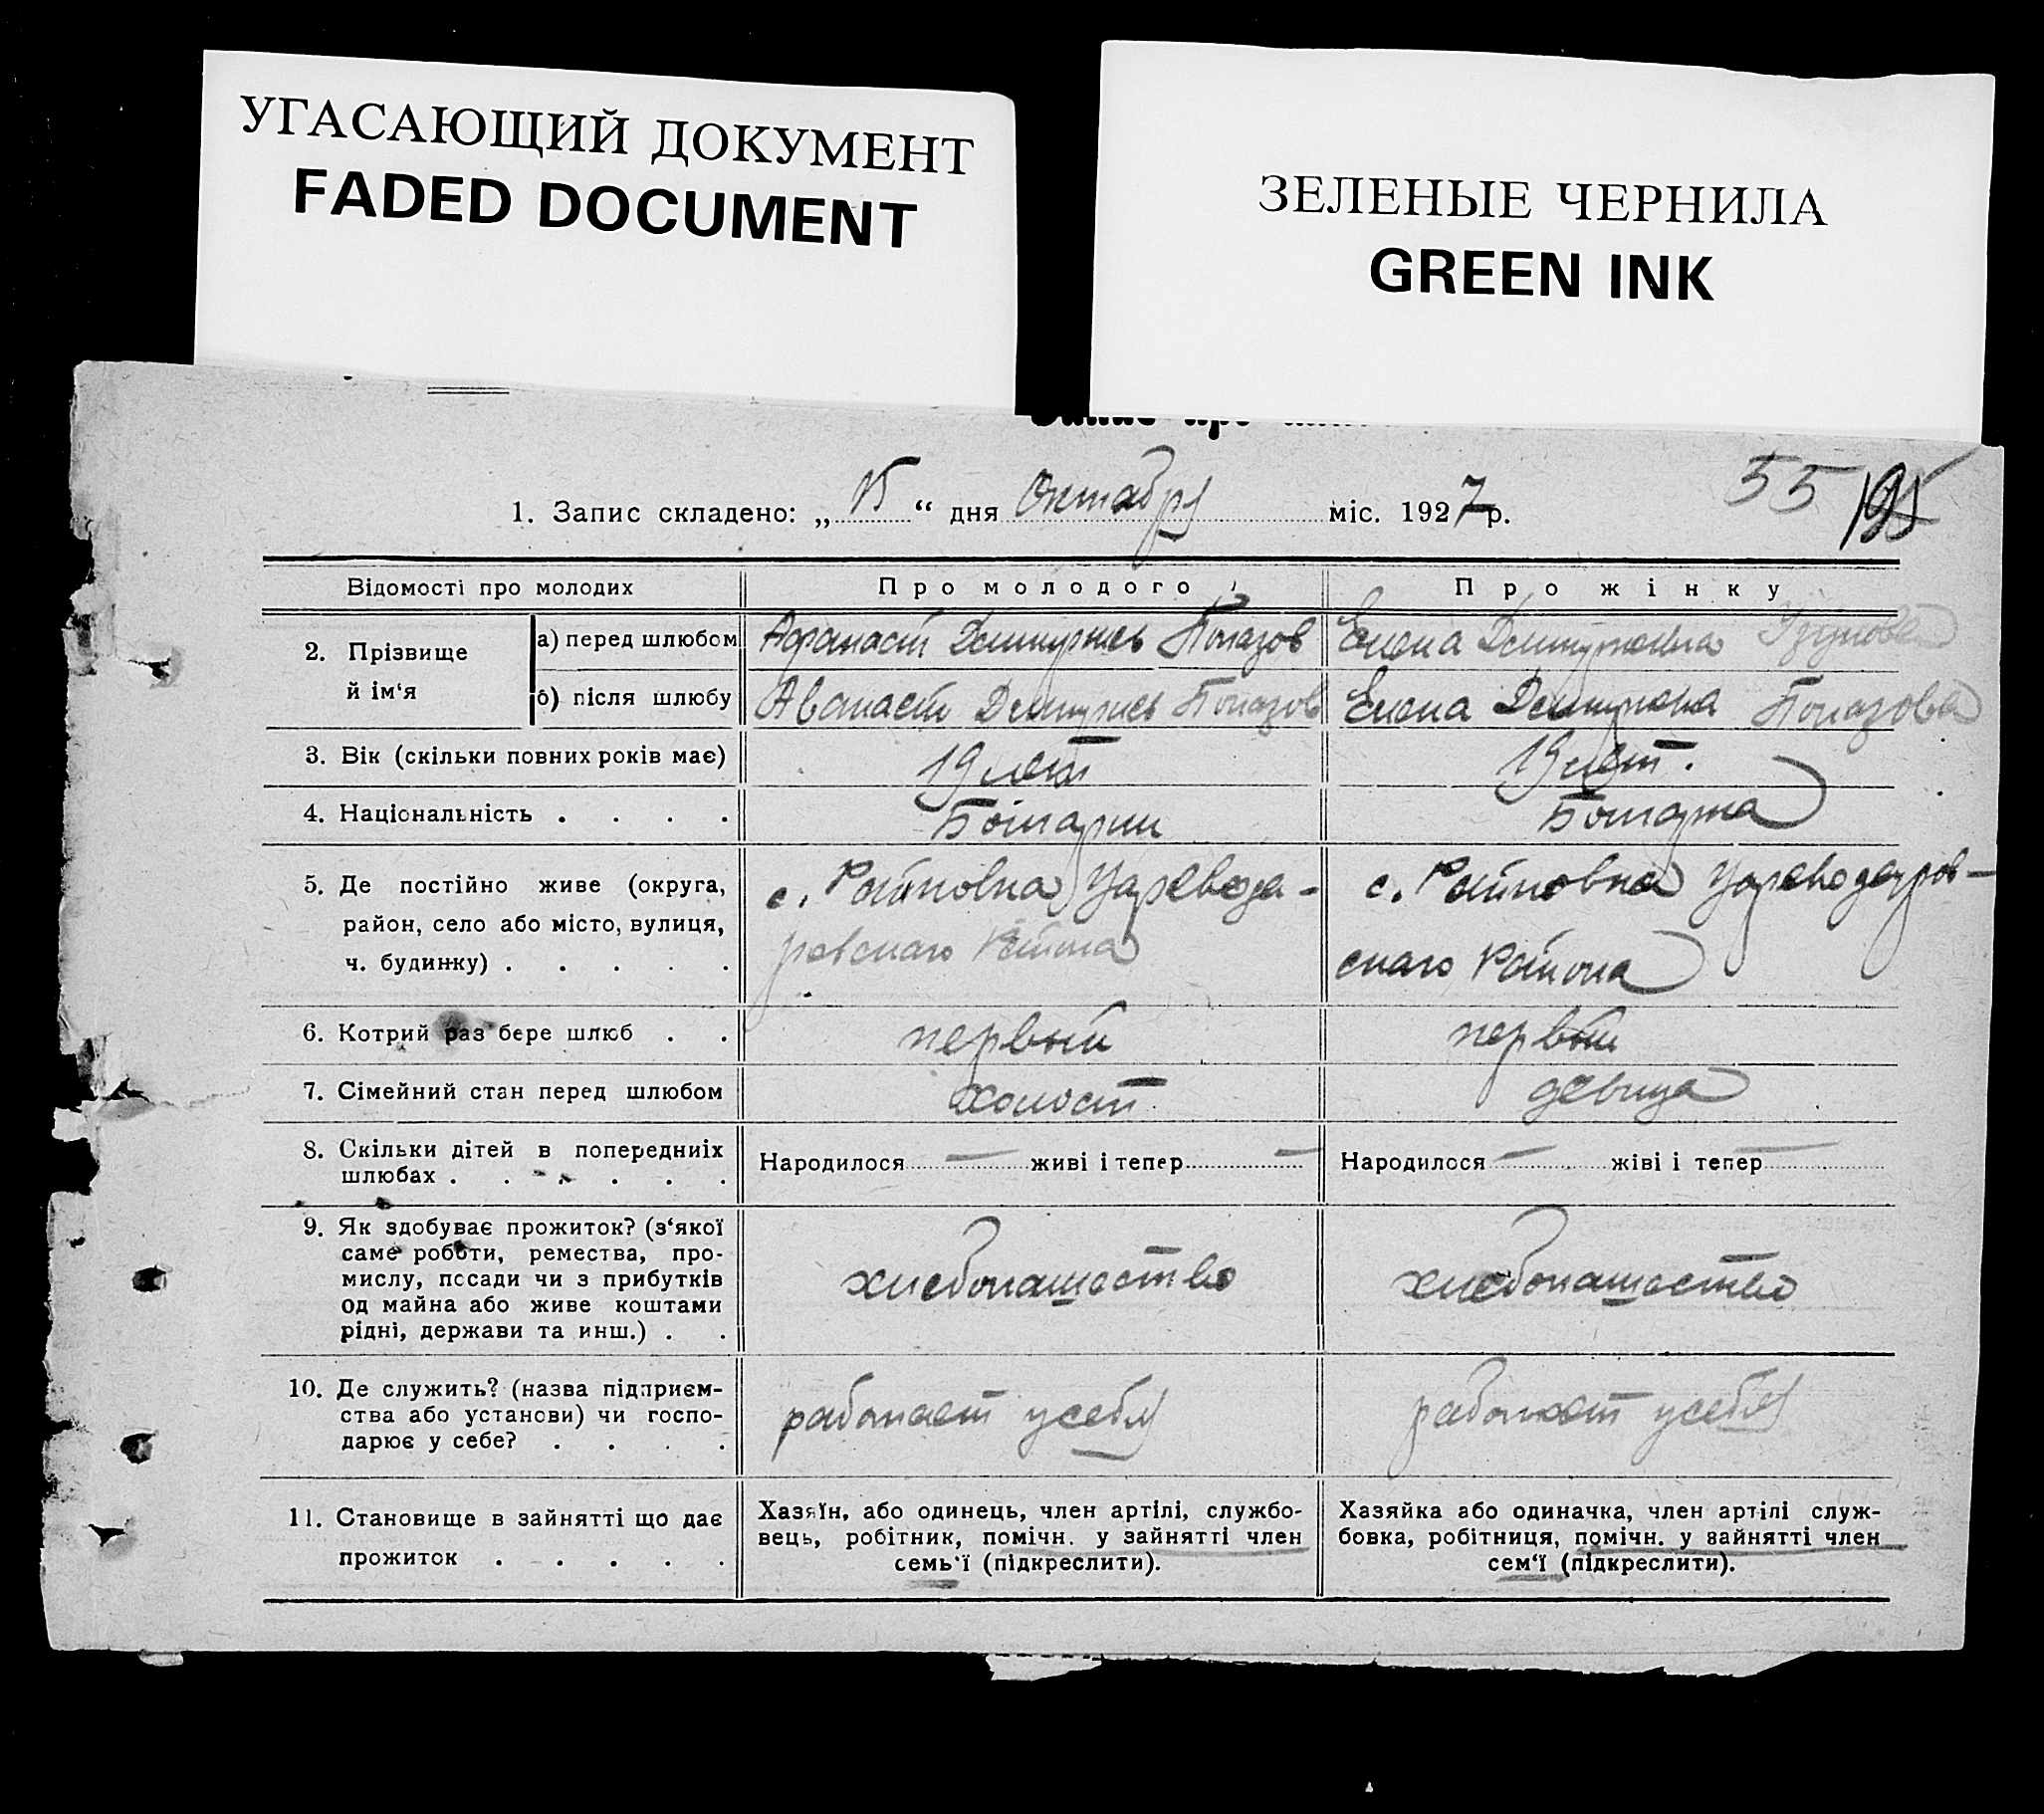 УГАСАЮЩИЙ ДОКУМЕНТ
FADED DOCUMENT
ЗЕЛЕНЫЕ ЧЕРНИЛА
GREEN INK
55
1. Запис складено: „ 15 “ дня Октября міс. 1927 р.
Відомості про молодих Про молодого Про жінку
2. Прізвище й ім‘я
а) перед шлюбом Афанасий Дмитриев Полазов Елена Дмитриевна Узунова
б) після шлюбу Аванасий Дмитриев Полазов Елена Дмитриевна Полазова
3. Вік (скільки повних років має) 19 лет 19 лет.
4. Національність . . . . Болгарин Болгарка
5. Де постійно живе (округа,
район, село або місто, вулиця,
ч. будинку) . . . . .
с. Райновка Царевода-
ровскаго Района
с. Райновка Цареводаров-
скаго Района
6. Котрий раз бере шлюб . . первый первый
7. Сімейний стан перед шлюбом холост девица
8. Скільки дітей в попередниіх
шлюбах . . . . . .
Народилося — живі і тепер — Народилося — жіві і тепер —
9. Як здобуває прожиток? (з‘якої
саме роботи, ремества, про-
мислу, посади чи з прибутків
од майна або живе коштами
рідні, держави та инш.) . .
хлебопашество хлебопашество
10. Де служить? (назва підприєм-
ства або установи) чи госпо-
дарює у себе? . . . .
работает у себя работает у себя
11. Становище в зайнятті що дає
прожиток . . . . .
Хазяїн, або одинець, член артілі, службо-
вець, робітник, помічн. у зайнятті член
семь‘ї (підкреслити).
Хазяйка або одиначка, член артілі служ-
бовка, робітниця, помічн. у зайнятті член
сем‘ї (підкреслити).